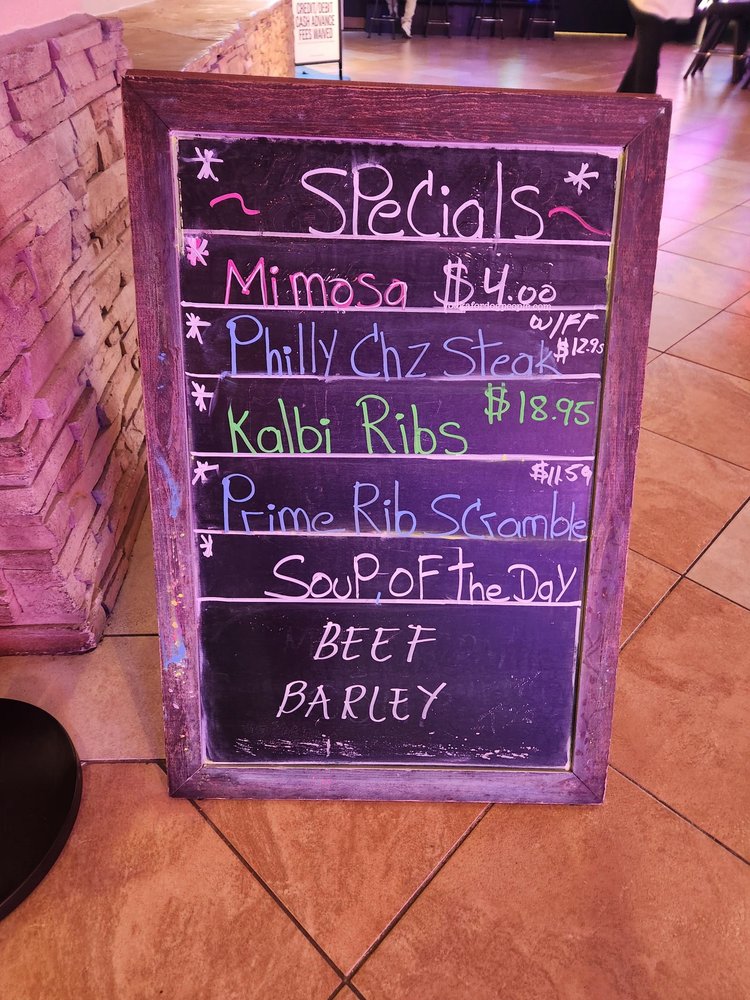 CREDIT/DEBIT
CASH ADVANCE
FEES WAIVED
* SPecials *
* Mimosa $4.00
* Philly Chz Steak W/FF $12.95
* Kalbi Ribs $18.95
* Prime Rib Scramble $11.59
* Soup OF the Day
BEEF
BARLEY